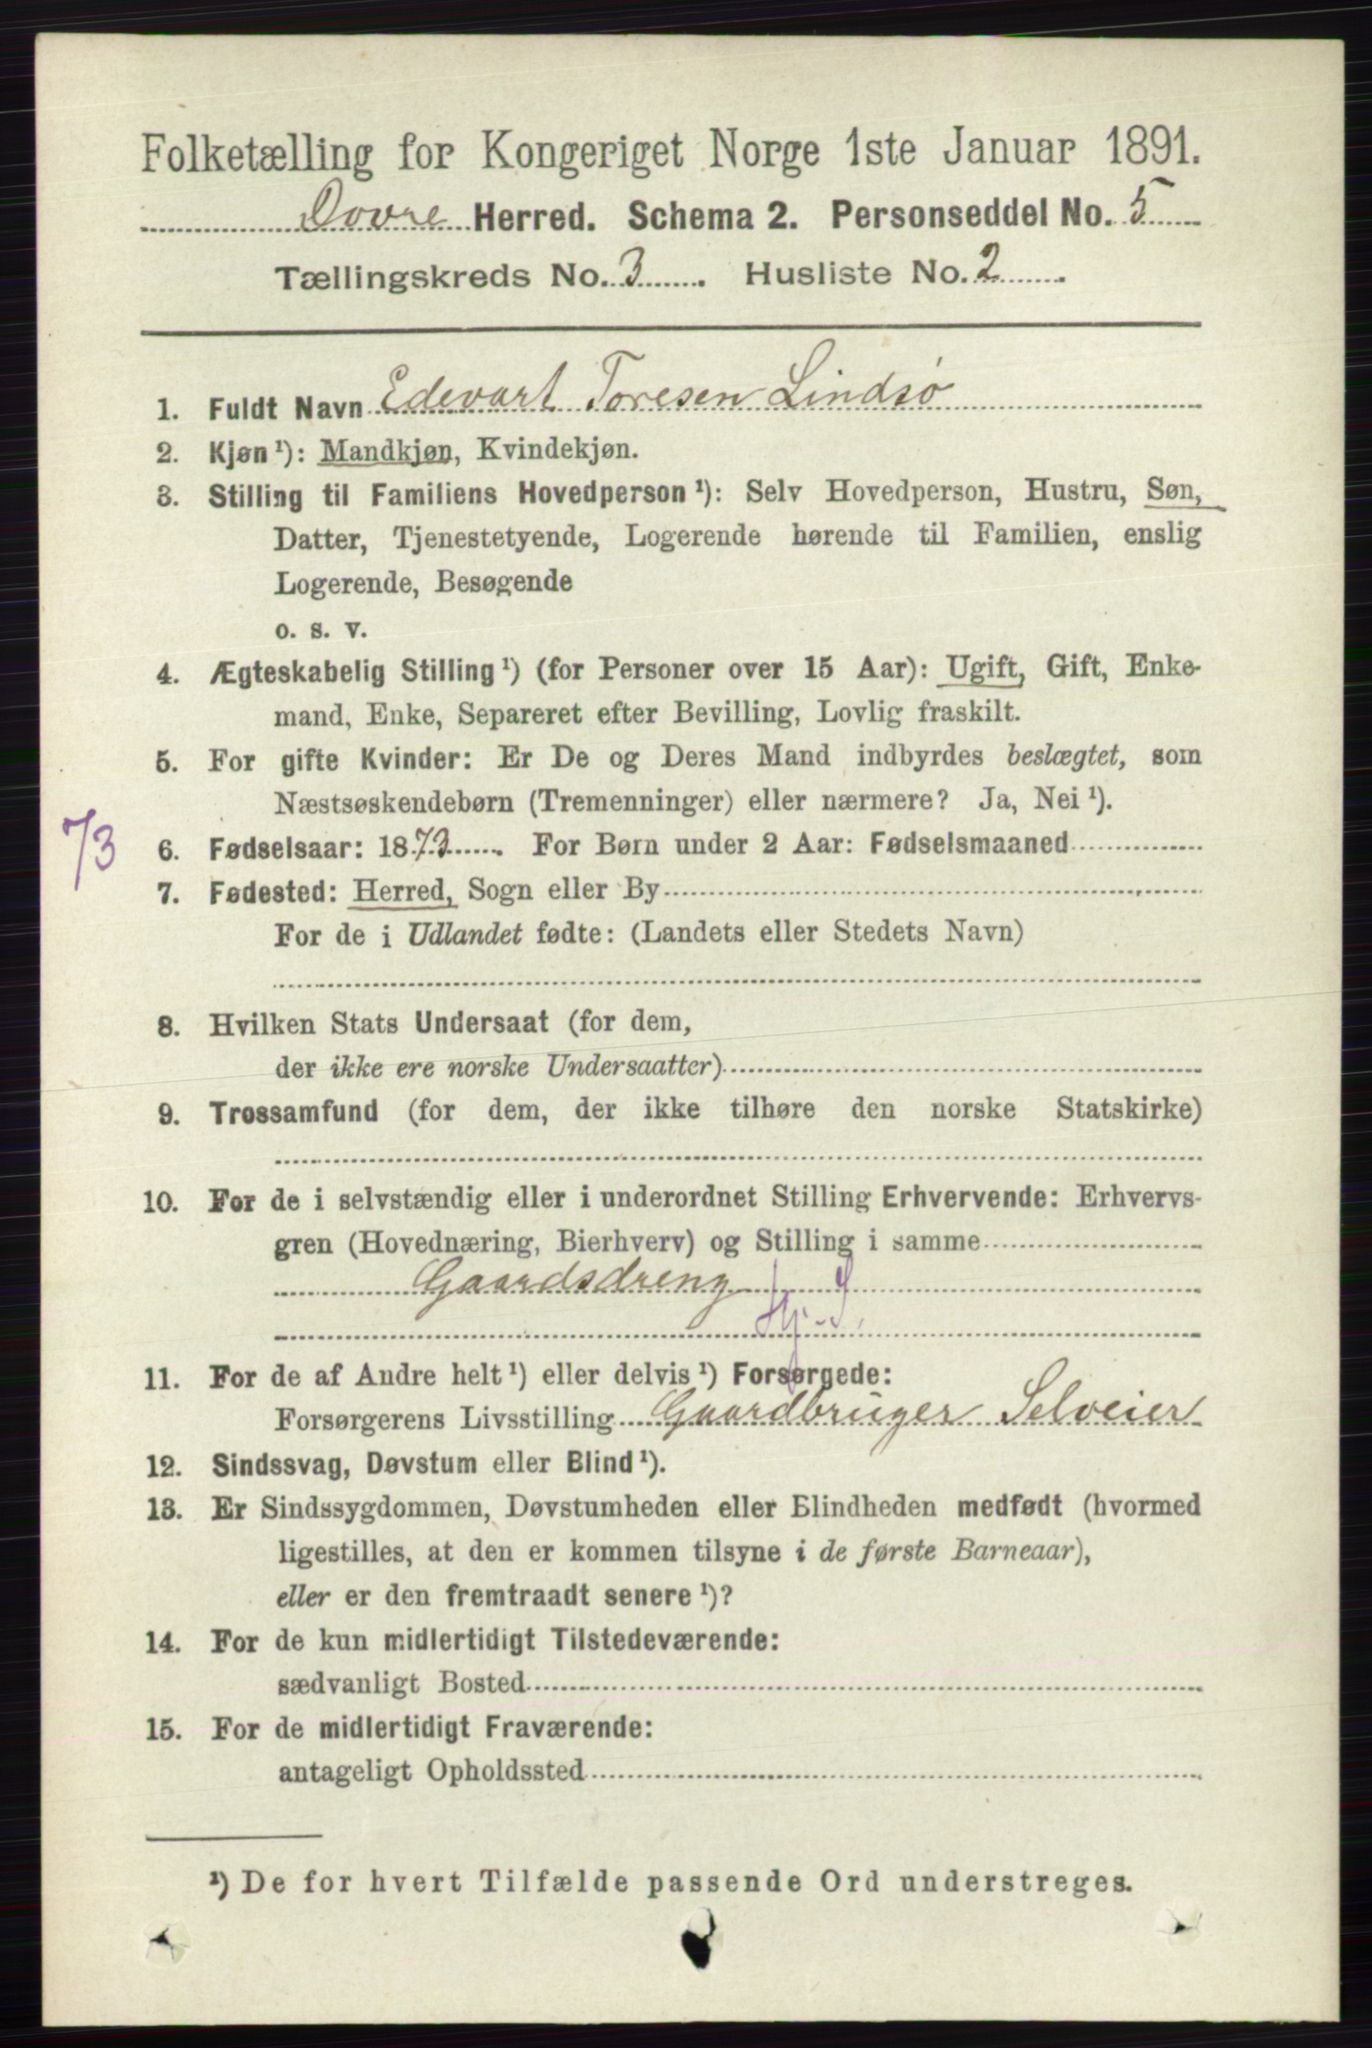 Folketælling for Kongeriget Norge 1ste Januar 1891.
Dovre Herred. Schema 2. Personseddel No. 5
Tællingskreds No. 3. Husliste No. 2.
1. Fuldt Navn Edevart Toresen Lindsø
2. Kjøn¹): Mandkjøn, Kvindekjøn.
3. Stilling til Familiens Hovedperson¹): Selv Hovedperson, Hustru, Søn,
Datter, Tjenestetyende, Logerende hørende til Familien, enslig
Logerende, Besøgende
o. s. v.
4. Ægteskabelig Stilling¹) (for Personer over 15 Aar): Ugift, Gift, Enke-
mand, Enke, Separeret efter Bevilling, Lovlig fraskilt.
5. For gifte Kvinder: Er De og Deres Mand indbyrdes beslægtet, som
Næstsøskendebørn (Tremenninger) eller nærmere? Ja, Nei¹).
73
6. Fødselsaar: 1873. For Børn under 2 Aar: Fødselsmaaned
7. Fødested: Herred, Sogn eller By
For de i Udlandet fødte: (Landets eller Stedets Navn)
8. Hvilken Stats Undersaat (for dem,
der ikke ere norske Undersaatter)
9. Trossamfund (for dem, der ikke tilhøre den norske Statskirke)
10. For de i selvstændig eller i underordnet Stilling Erhvervende: Erhvervs-
gren (Hovednæring, Bierhverv) og Stilling i samme
Gaardsdreng
11. For de af Andre helt¹) eller delvis¹) Forsørgede:
Forsørgerens Livsstilling Gaardbruger Selveier
12. Sindssvag, Døvstum eller Blind¹).
13. Er Sindssygdommen, Døvstumheden eller Blindheden medfødt (hvormed
ligestilles, at den er kommen tilsyne i de første Barneaar),
eller er den fremtraadt senere¹)?
14. For de kun midlertidigt Tilstedeværende:
sædvanligt Bosted
15. For de midlertidigt Fraværende:
antageligt Opholdssted
¹) De for hvert Tilfælde passende Ord understreges.